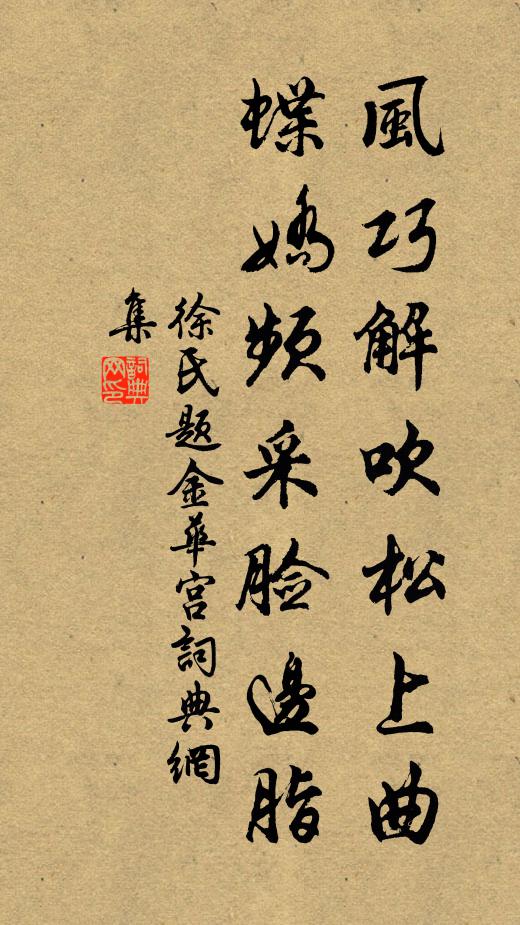 風巧解吹松上曲
蝶嬌頻采臉邊脂
徐氏題金華宫詞典網
集
詞典
网印